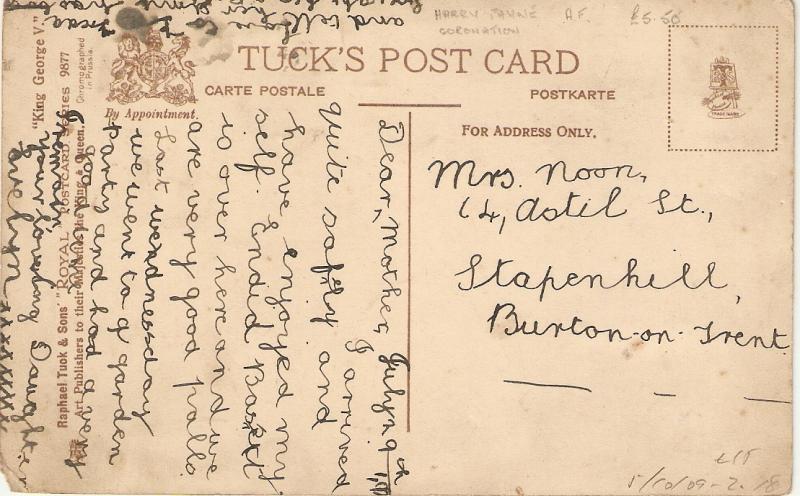 HARRY PAYNE A.F. £5.50
CORONATION
TUCK'S POST CARD
CARTE POSTALE
POSTKARTE
By Appointment.
FOR ADDRESS ONLY.
TRADE MARK
"King George V."
Raphael Tuck & Sons' "ROYAL" POSTCARD SERIES 9877
Art Publishers to their Majesties the King & Queen.
Chromographed in Prussia.
Mrs. Noon,
14, Astil St.,
Stapenhill,
Burton-on-Trent.
July 29th
Dear, Mother, I arrived
quite safily and
have enjoyed my
self. Endid Baskit
is over here and we
are very good palls.
Last wendnessday
we went to a garden
party and had a very
good time
I remain,
your loving Daughter
Evelyn xxxxxxxx
and tell
5/10/09-2. 18